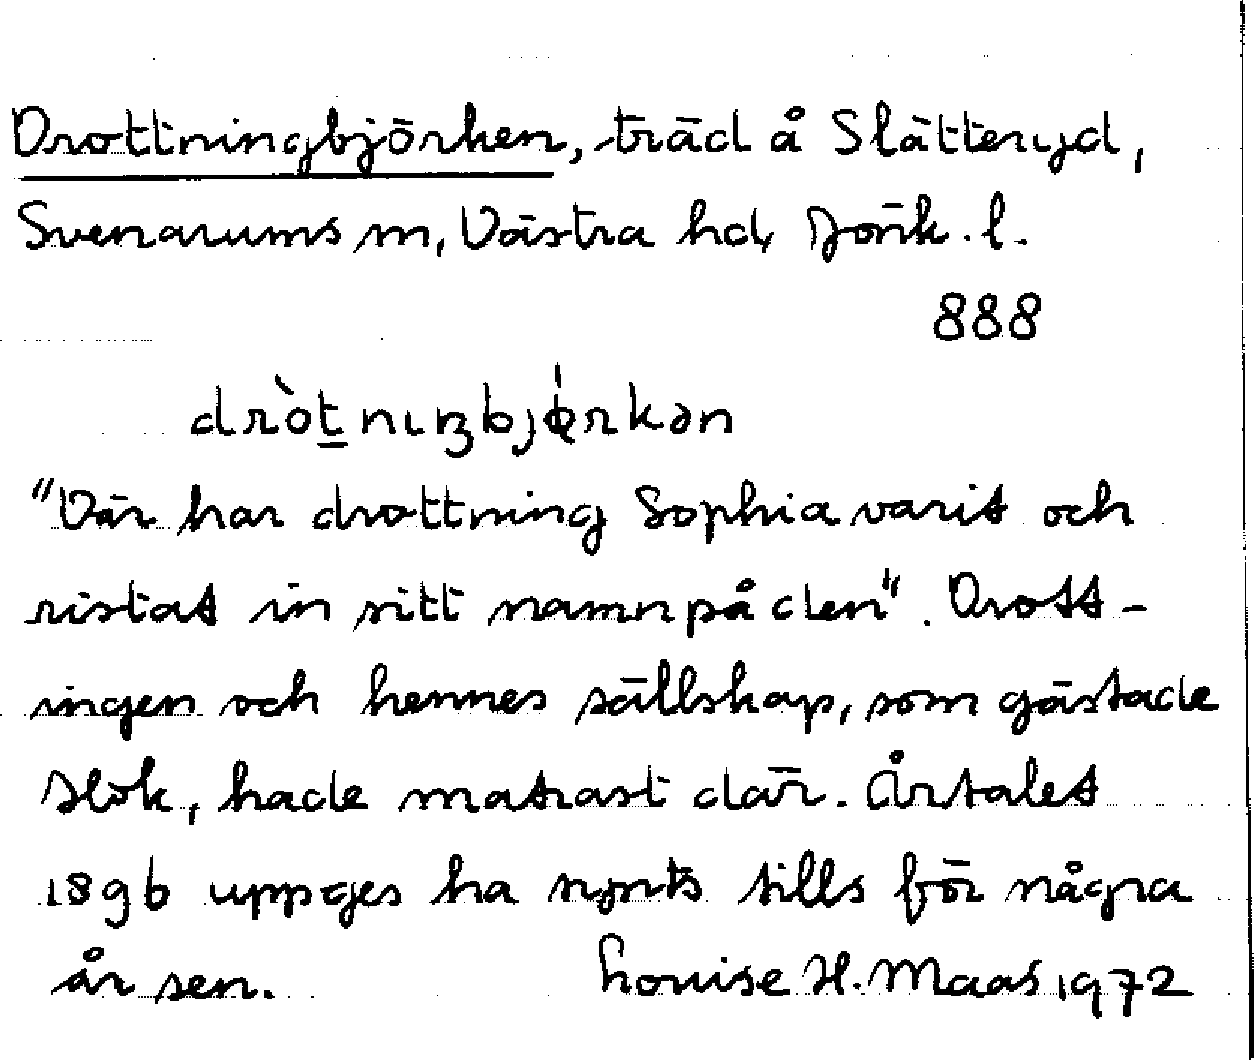 Drottningbjörken, träd å Slätteryd,
Svenarums sn, Västra hd, Jönk. l.
888
dròt̲nıŋbjǿrkən
"Där har drottning Sophia varit och
ristat in sitt namn på den". Drott-
ingen och hennes sällskap, som gästade
Hok, hade matrast där. Årtalet
1896 uppges ha synts tills för några
år sen. Louise H. Maas 1972